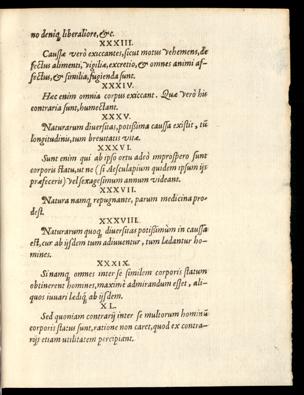 no deniq; liberaliore, &c.
XXXIII.
Caussæ verò exiccantes, sicut motus vehemens, de
fectus alimenti, vigiliæ, excretio, & omnes animi af-
fectus, & similia, fugienda sunt.
XXXIV.
Hæc enim omnia corpus exiccant. Quæ verò his
contraria sunt, humectant.
XXXV.
Naturarum diversitas, potissima caussa existit, tū
longitudinis, tum brevitatis vitæ.
XXXVI.
Sunt enim qui ab ipso ortu adeò improspero sunt
corporis statu, ut ne (si Æsculapium quidem ipsum ijs
præfeceris) vel sexagesimum annum videant.
XXXVII.
Natura namq; repugnante, parum medicina pro-
dest.
XXXVIII.
Naturarum quoq; diversitas potissimùm in caussa
est, cur ab ijsdem tum adiuventur, tum lædantur ho-
mines.
XXXIX.
Si namq; omnes inter se similem corporis statum
obtinerent homines, maximè admirandum esset, ali-
quos iuvari lædiq; ab ijsdem.
XL.
Sed quoniam contrarij inter se multorum hominū
corporis status sunt, ratione non caret, quod ex contra-
rijs etiam utilitatem percipiant.